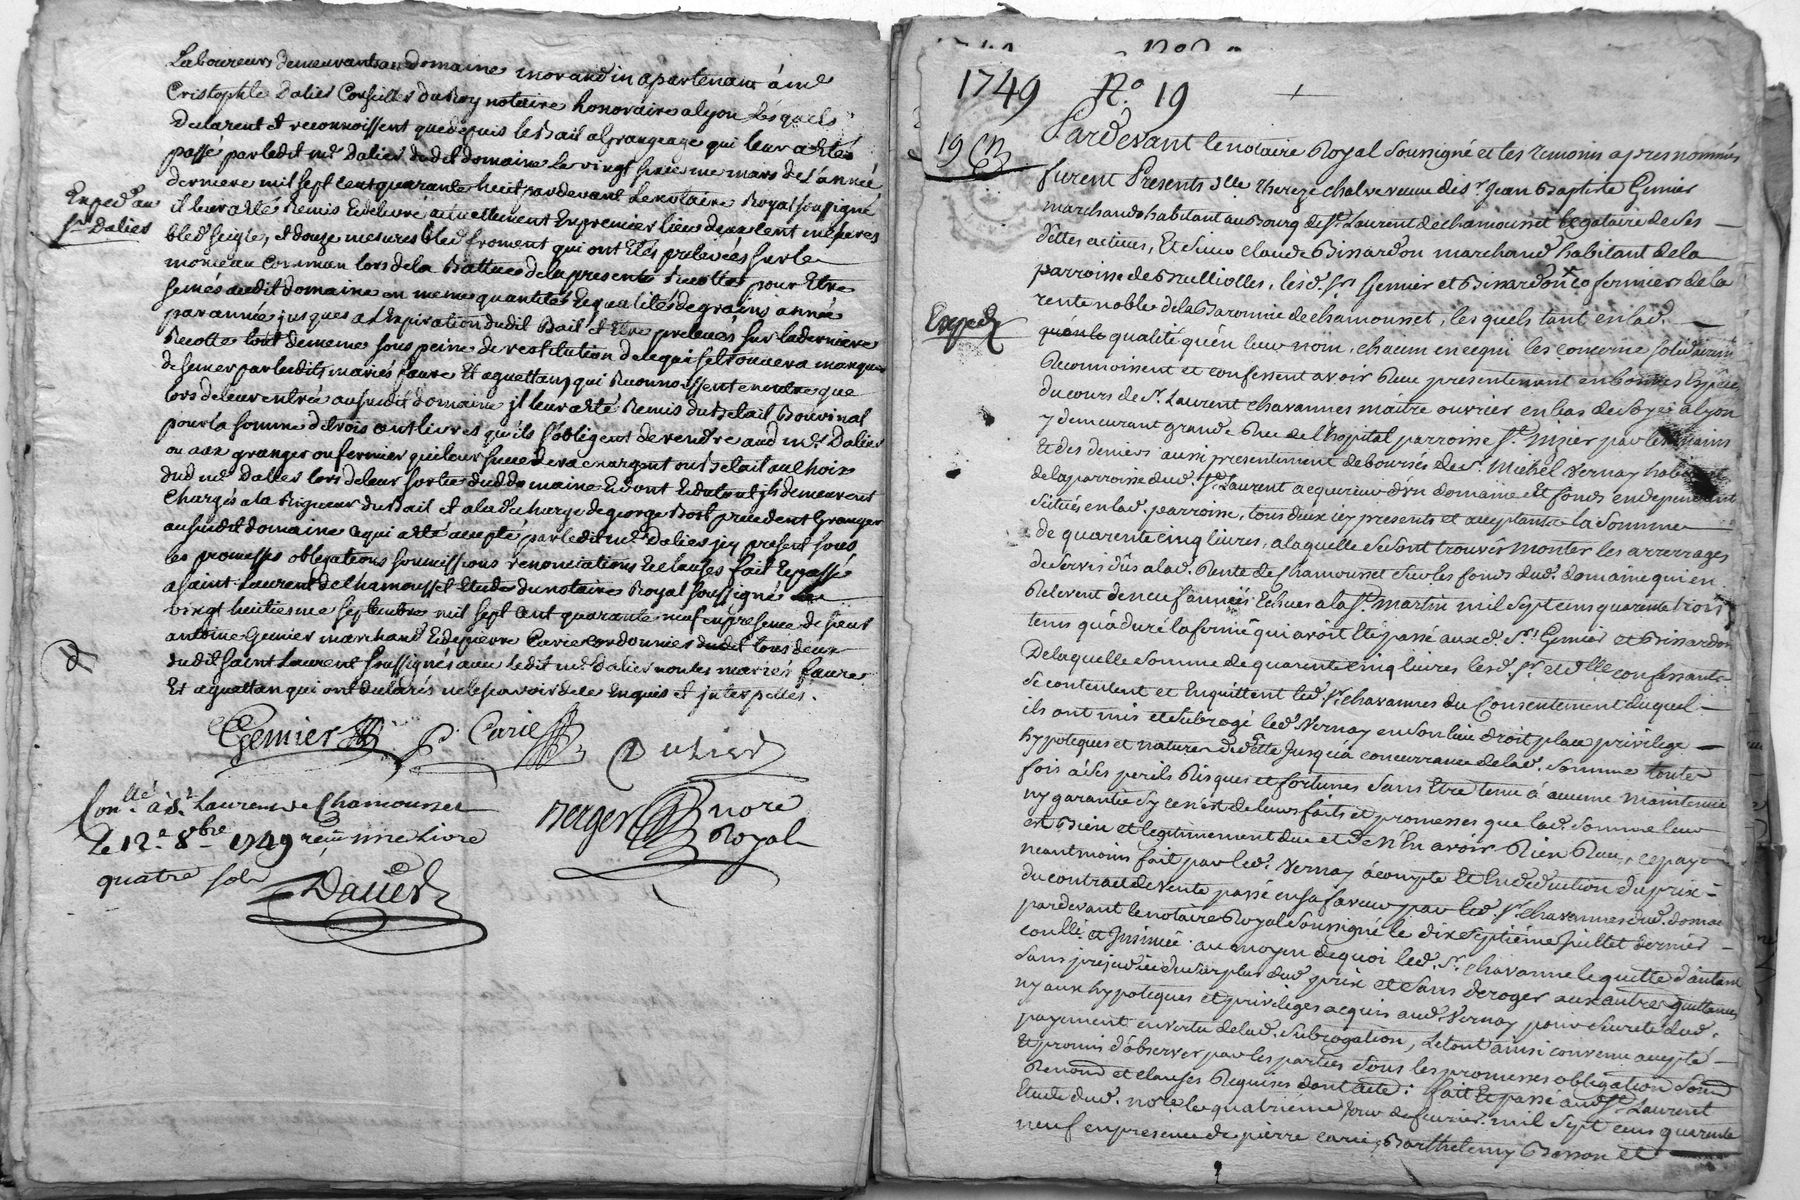 Laboureurs demeurants au domaine morandin apartenant à me
Cristophle Dalier Conseiller du Roy notaire honoraire a lyon Lesquels
declarent et reconnoissent que depuis le Bail a Grangeage qui leur a etté
passé par ledit mr. Dalier dudit domaine le vingt mars de l'année
derniere mil sept cent quarante huit pardevant Le notaire Royal soussigné
il leur a eté Remis Et delivré actuellement En premier lieu mezures
bled seigle, et douze mesures bled froment qui ont Etés prelevées sur le
monceau commun lors de la Battue de la presente Recolte pour Etre
semés audit domaine en meme quantité Et qualité de grains année
par année jusques a l'Expiration dudit Bail et Etre prelevés sur la derniere
Recolte tout de meme sous peine de restitution de ce qui se trouvera manquer
de semer par lesdits mariés faure Et aquettant qui Reconnoissent encore que
lors de leur entrée au susdit domaine il leur a eté Remis du Betail Bouvinal
pour la somme de trois cent livres qu'ils s'obligent de rendre aud mr. Dalier
ou aux granger ou fermier qui leur succedera en argent ou Betail au choix
dud mr. Dalier lors de leur sortie dud domaine Et dont Et du tout ils demeurent
Chargés a la Rigueur du Bail et a la decharge de george Bost precedent Granger
au susdit domaine ce qui a eté accepté par ledit mr. Dalier icy present sous
les promesses obligations soumissions renonciations Et clauses fait Et passé
a saint Laurent de Chamousset Etude du notaire Royal soussigné le
vingt huitiesme septembre mil sept cent quarante neuf en presence de sieur
antoine Gemier marchand Et de pierre Carie Cordonnier tous deux
dudit saint Laurent soussignés avec ledit mr. Dalier non les mariés faure
Et aquettant qui ont declarés ne le scavoir de ce Enquis et interpellés.
Exped. au
sr. Dalier
Gemier P. Carie Dalier
Conllé. à St. Laurent de Chamousset
Le 12e 8bre 1749 reçu une Livre
quatre sols
Berger nore
Royal
1749 No. 19
19
Pardevant le notaire Royal soussigné et les temoins apres nommés
furent Presents dlle Thereze chalve veuve de sr. Jean Baptiste Gemier
marchand habitant au Bourg de St. Laurent de chamousset legataire de ses
dettes actives, Et sieur claude Bissardon marchand habitant de la
parroisse de Brulliolles, lesd. srs Gemier et Bissardon co fermiers de la
rente noble de la Baronnie de chamousset, lesquels tant en lad.
qualité qu'en leur nom, chacun en ce qui les concerne solidairemt
Reconnoissent et confessent avoir Reçu presentement en bonnes Especes
du cours de sr. Laurent chavannes maitre ouvrier en bas de soye a lyon
y demeurant grande Rue de l'hopital parroisse St. nizier par les mains
Et des deniers aussi presentement deboursés de sr. Michel vernay habitant
de la parroisse dud. St. Laurent acquereur d'un domaine Et fonds en dependant
situés en lad. parroisse, tous deux icy presents et acceptants la somme
de quarente cinq livres, a laquelle se sont trouvés monter les arrerages
de servis dûs a lad. Rente de chamousset sur les fonds dud. domaine qui en
Relevent de neuf années Echues a la St. martin mil sept cens quarente trois
tems qu'a duré la ferme qui avoit Eté passé auxd. srs Gemier et Bissardon
De laquelle somme de quarente cinq livres lesd. sr. et dlle. confessants
se contentent et Enquittent led. sr. chavannes du consentement duquel
ils ont mis et subrogé led. vernay en son lieu droit place privilege
hypoteques et nature de dette Jusqu'a concurrance de lad. somme toute
fois à ses perils Risques et fortunes sans Etre tenu à aucune maintenue
ny garantie sy ce n'est de leurs faits et promesses que lad. somme leur
est Bien et legitimement due et de n'En avoir Rien Reçu, ce payemt
neantmoins fait par led. vernay à compte Et En deduction du prix
du contract de vente passé en sa faveur par led. sr. chavannes dud. domaine
pardevant le notaire Royal soussigné le dix septiéme Juillet dernier
conllé. et Insinué au moyen de quoi led. sr. chavanne le quitte d'autant
sans prejudice du surplus dud. prix et sans deroger aux autres quittances
ny aux hypoteques et privileges acquis aud. vernay pour seureté dud.
payement en vertu de lad. subrogation, Le tout ainsi convenu accepté
Et promis d'observer par les parties sous les promesses obligation soumd
Renond et clauses Requises dont acte: fait Et passé aud St. Laurent
Etude dud. nore. le quatriéme Jour de fevrier mil sept cens quarente
neuf en presence de pierre carie, Barthelemy Basson et
Exped